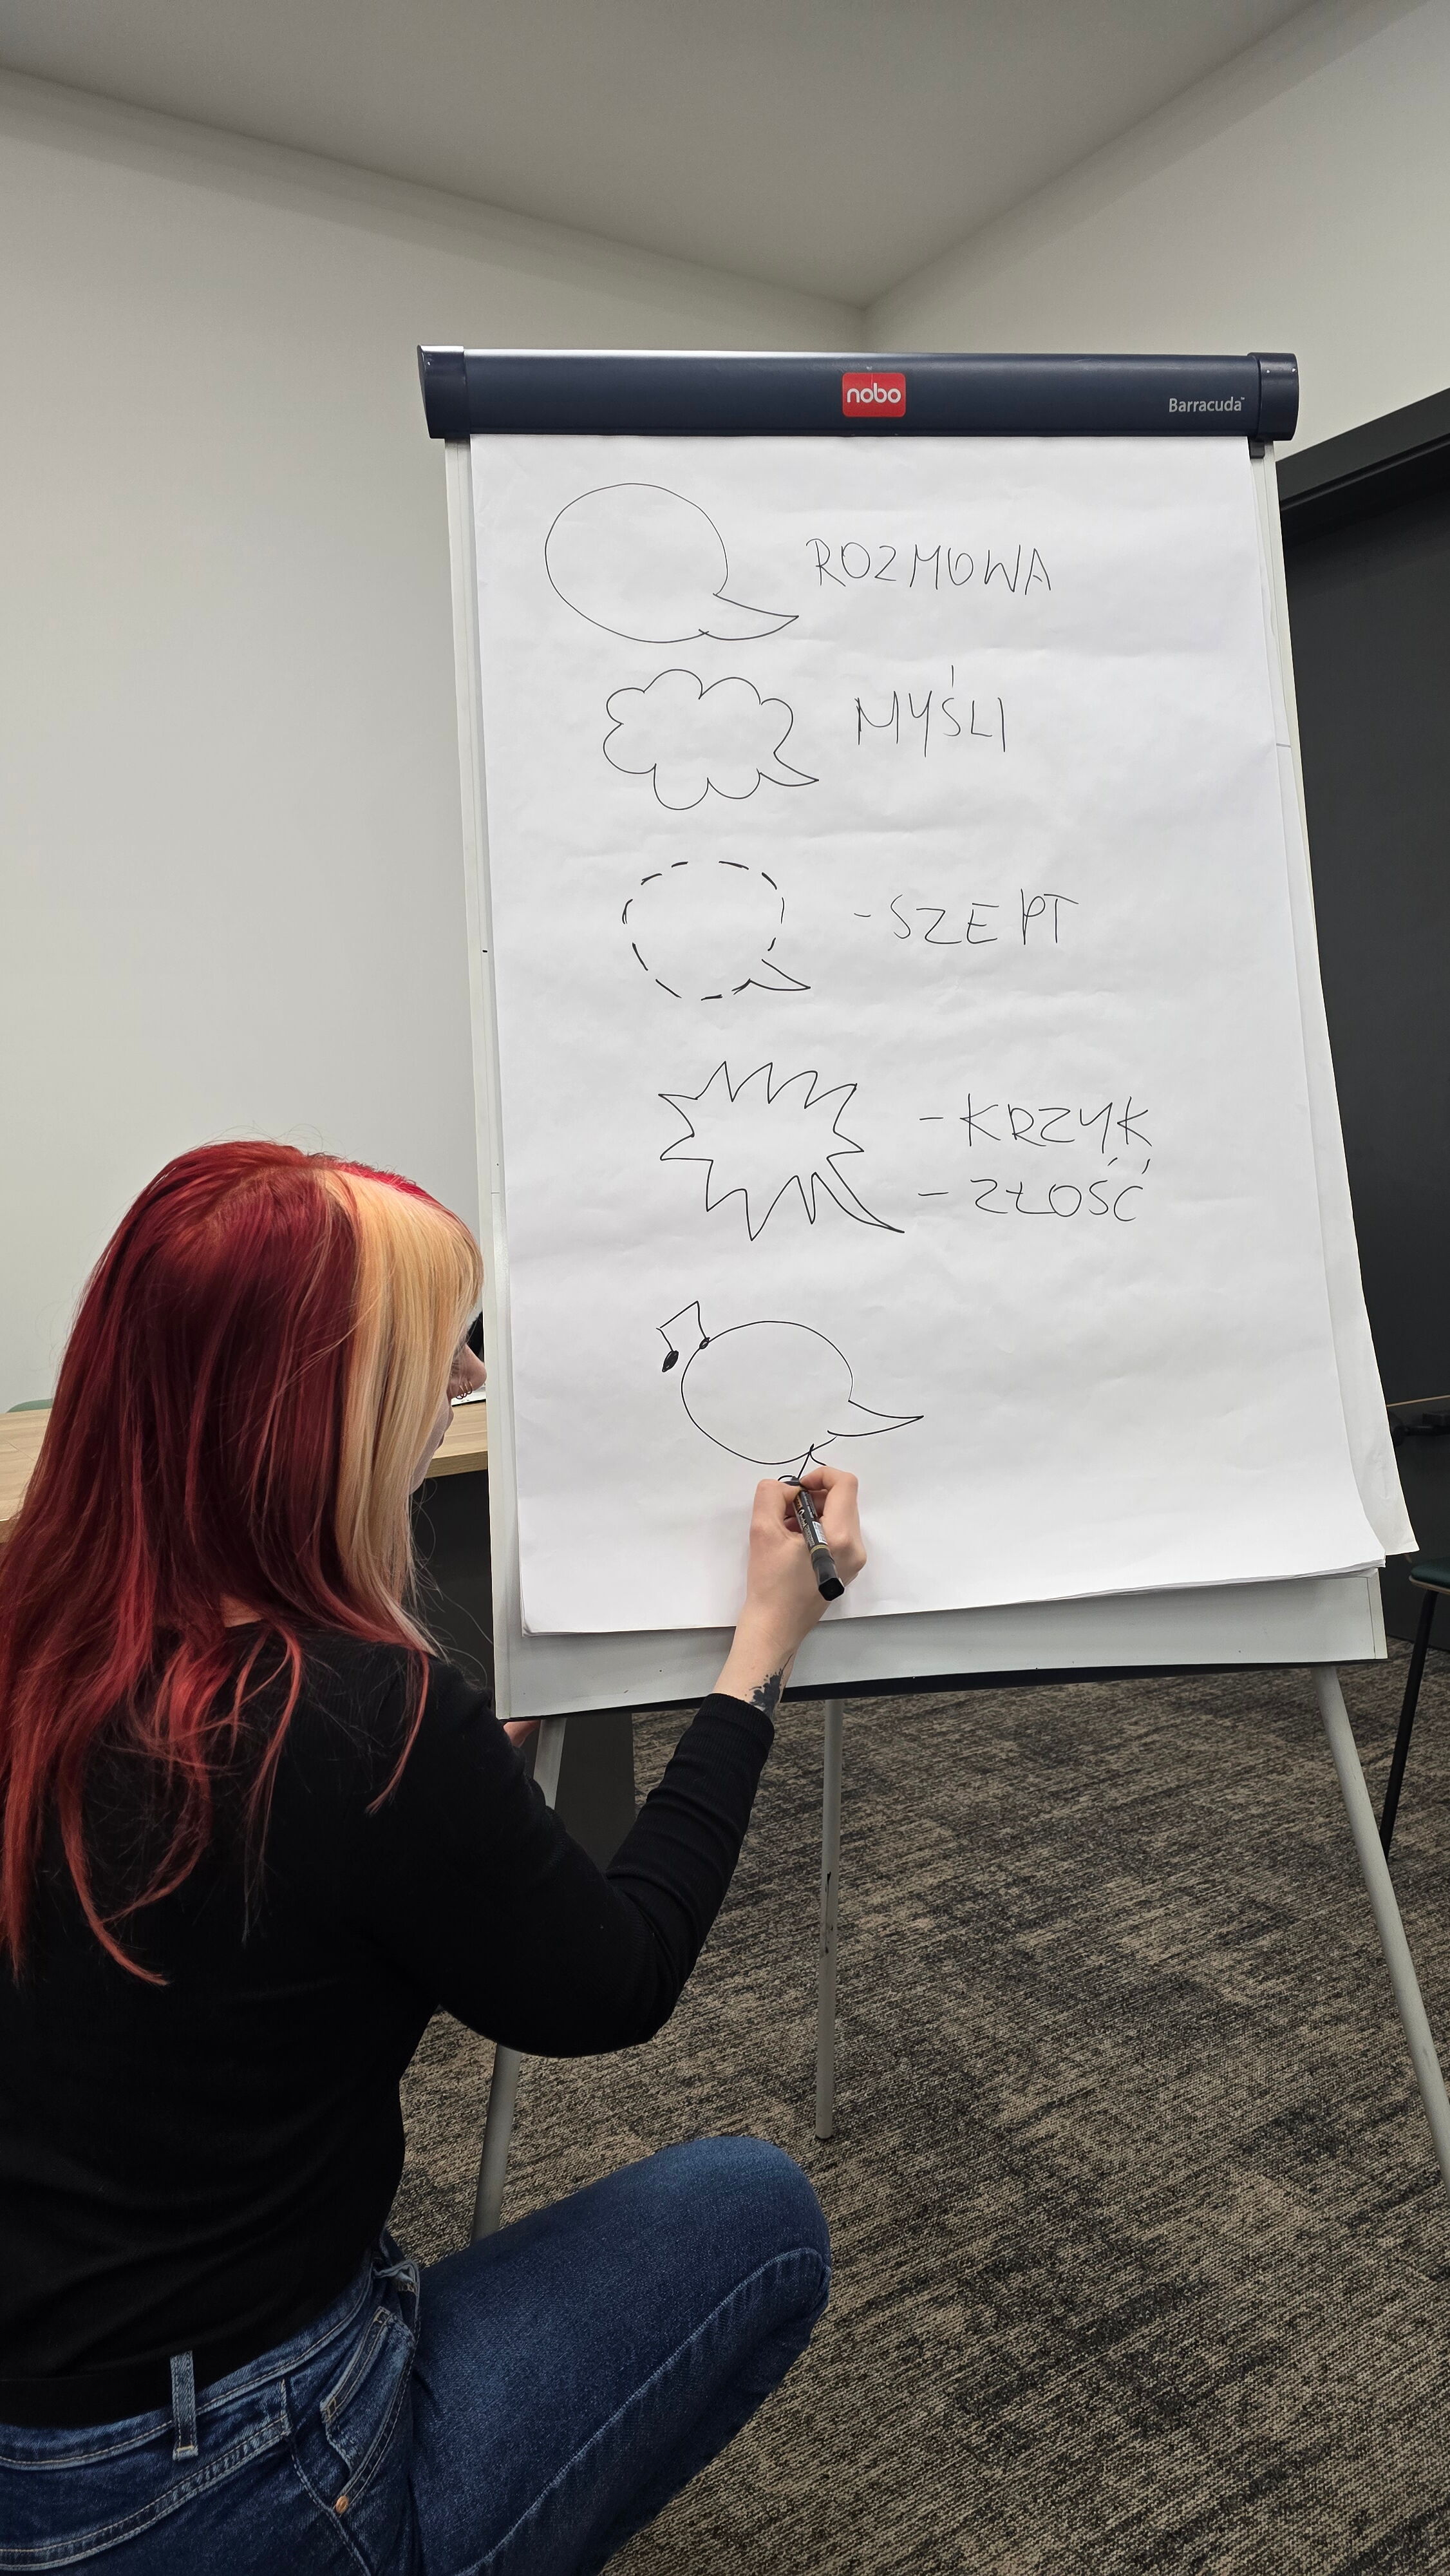 nobo
Barracuda™
ROZMOWA
MYŚLI
- SZEPT
- KRZYK
- ZŁOŚĆ